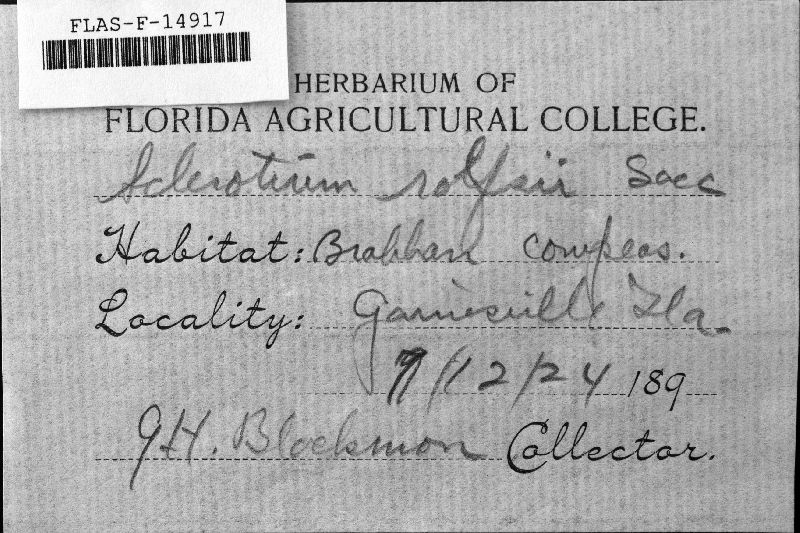 FLAS-F-14917
HERBARIUM OF
FLORIDA AGRICULTURAL COLLEGE.
Sclerotium rolfsii Sacc
Habitat: Brabham cowpeas.
Locality: Gainesville Fla.
7/12/24 189
G.H. Blackmon Collector.